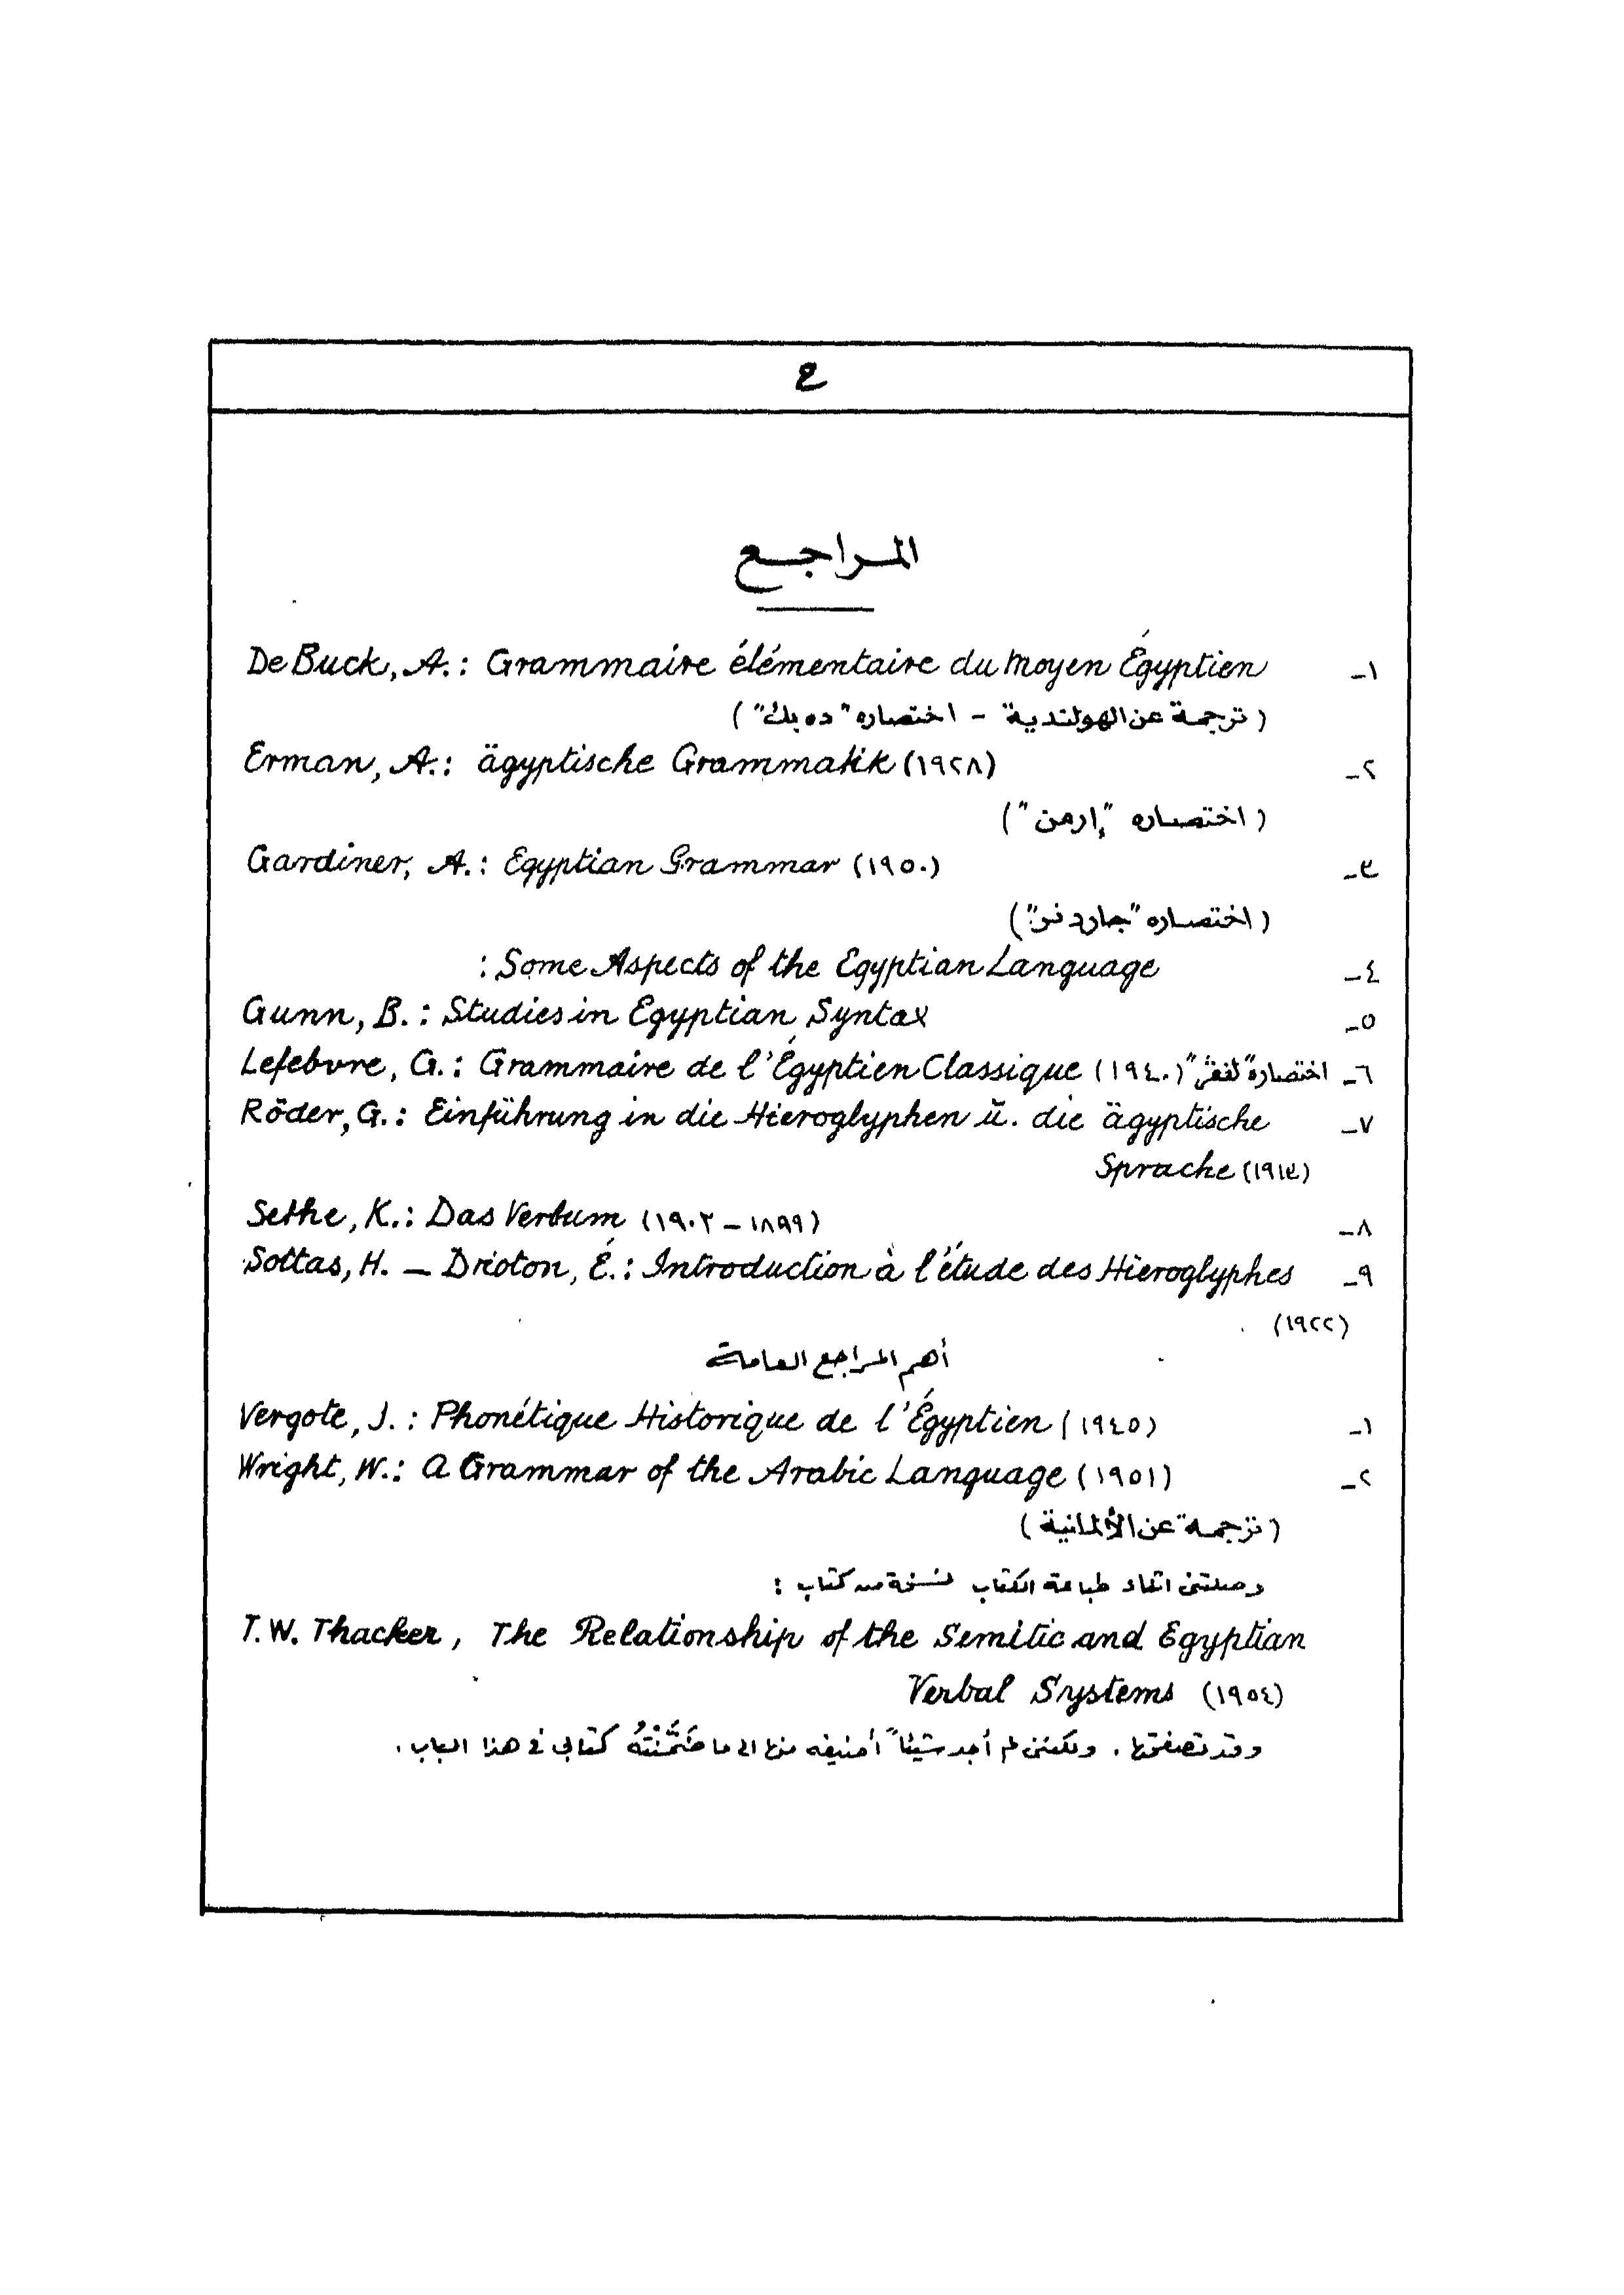 ع
المراجع
١- De Buck, A.: Grammaire élémentaire du Moyen Égyptien
(ترجمة عن الهولندية - اختصاره "ده بك")
٢- Erman, A.: ägyptische Grammatik (١٩٢٨)
(اختصاره "إرمن")
٣- Gardiner, A.: Egyptian Grammar (١٩٥٠)
(اختصاره "جاردنر")
٤- : Some Aspects of the Egyptian Language
٥- Gunn, B.: Studies in Egyptian Syntax
٦- Lefebvre, G.: Grammaire de l'Égyptien Classique (١٩٤٠) اختصاره "لفڤر"
٧- Röder, G.: Einführung in die Hieroglyphen ü. die ägyptische
Sprache (١٩١٣)
٨- Sethe, K.: Das Verbum (١٨٩٩ - ١٩٠٢)
٩- Sottas, H. — Drioton, É.: Introduction à l'étude des Hieroglyphes
(١٩٢٢)
أهم المراجع العامة
١- Vergote, J.: Phonétique Historique de l'Égyptien (١٩٤٥)
٢- Wright, W.: A Grammar of the Arabic Language (١٩٥١)
(ترجمة عن الألمانية)
وصلتنى اثناء طباعة الكتاب نسخة من كتاب :
T. W. Thacker, The Relationship of the Semitic and Egyptian
Verbal Systems (١٩٥٤)
وقد تصفحتها . ولكننى لم أجد شيئاً أضيفه منها الى ما ضَمَّنْتُهُ كتابي فى هذا الباب .